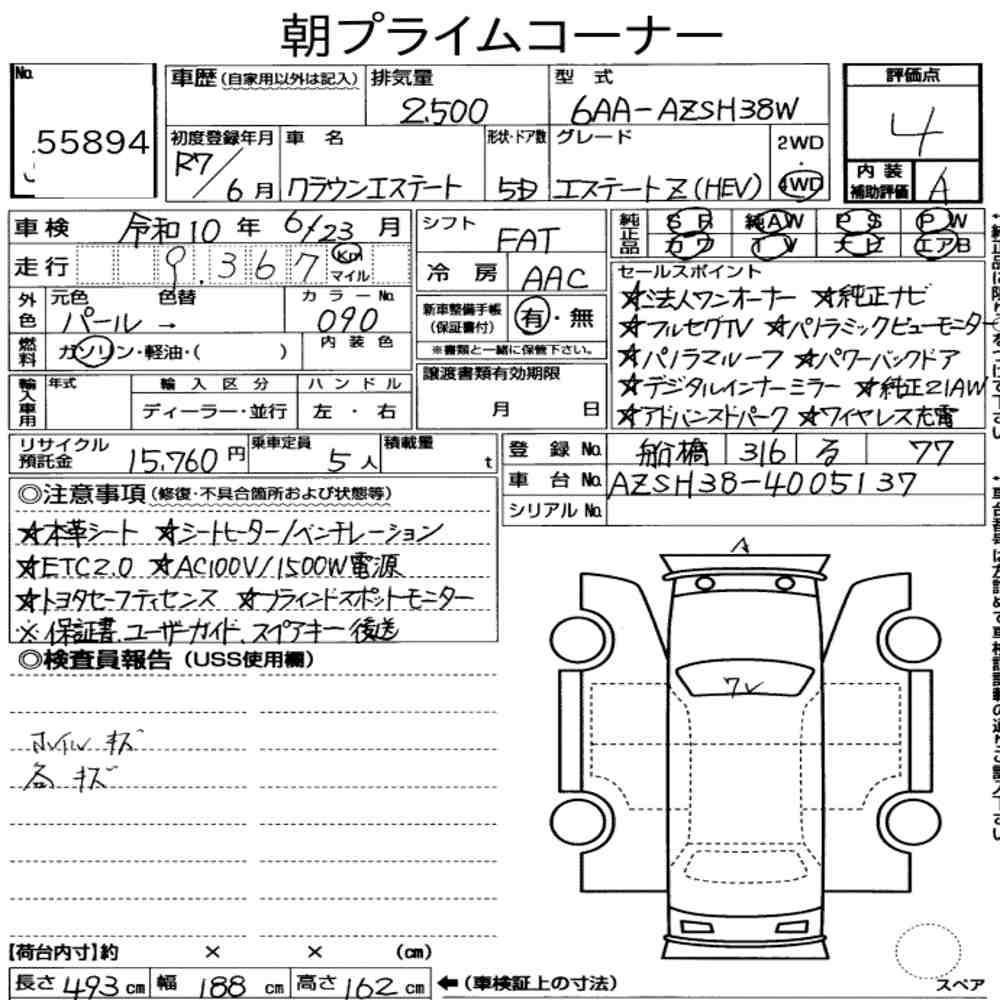 朝プライムコーナー
No. 55894
車歴 (自家用以外は記入)
排気量 2,500
型式 6AA-AZSH38W
評価点 4
初度登録年月 R7/6月
車名 クラウンエステート
形状・ドア数 5D
グレード エステートZ(HEV)
2WD・4WD
内装補助評価 A
車検 令和10年 6/23月
シフト FAT
純正品 SR 純AW PS PW
カワ TV ナビ エアB
走行 9,367 Km マイル
冷房 AAC
セールスポイント
☆法人ワンオーナー ☆純正ナビ
☆フルセグTV ☆パノラミックビューモニター
☆パノラマルーフ ☆パワーバックドア
☆デジタルインナーミラー ☆純正21AW
☆アドバンストパーク ☆ワイヤレス充電
外色 元色 パール → 色替
カラーNo. 090
新車整備手帳(保証書付) 有・無
※書類と一緒に保管下さい。
燃料 ガソリン・軽油・( )
内装色
輸入車用 年式 輸入区分 ハンドル
ディーラー・並行 左・右
譲渡書類有効期限
月 日
リサイクル預託金 15,760円
乗車定員 5人
積載量 t
登録No. 船橋 316 る 77
車台No. AZSH38-4005137
シリアルNo.
◎注意事項 (修復・不具合箇所および状態等)
☆本革シート ☆シートヒーター/ベンチレーション
☆ETC2.0 ☆AC100V/1500W電源
☆トヨタセーフティセンス ☆ブラインドスポットモニター
※保証書、ユーザーガイド、スペアキー後送
◎検査員報告 (USS使用欄)
ホイルキズ
各キズ
A
フレ
【荷台内寸】約 × × (cm)
長さ 493cm 幅 188cm 高さ 162cm ←(車検証上の寸法)
スペア